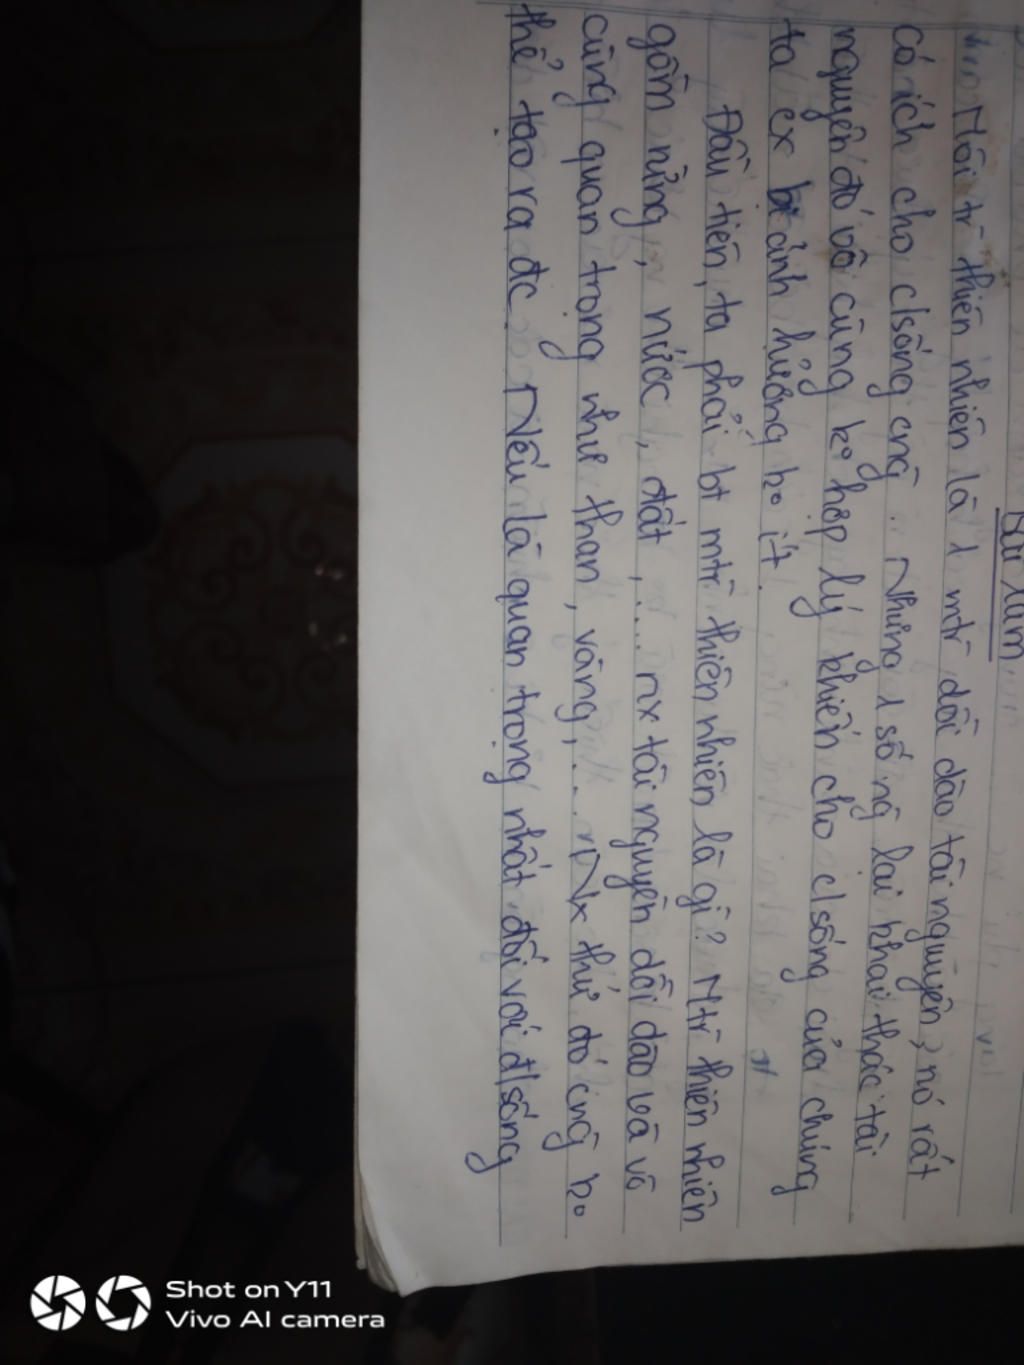 Bài làm
Môi tr̀ thiên nhiên là 1 mtr̀ dồi dào tài nguyên, nó rất
có ích cho c/sống cng̀. Nhưng 1 số ng̀ lại khai thác tài
nguyên đó vô cùng ko hợp lý khiến cho c/sống của chúng
ta cx bị ảnh hưởng ko ít.
Đầu tiên, ta phải bt mtr̀ thiên nhiên là gì? Mtr̀ thiên nhiên
gồm rừng, nước, đất,... nx tài nguyên dồi dào và vô
cùng quan trọng như than, vàng,... Nx thứ đó cng̀ ko
thể tạo ra đc. Nếu là quan trọng nhất đối với đ/sống
Shot on Y11
Vivo AI camera